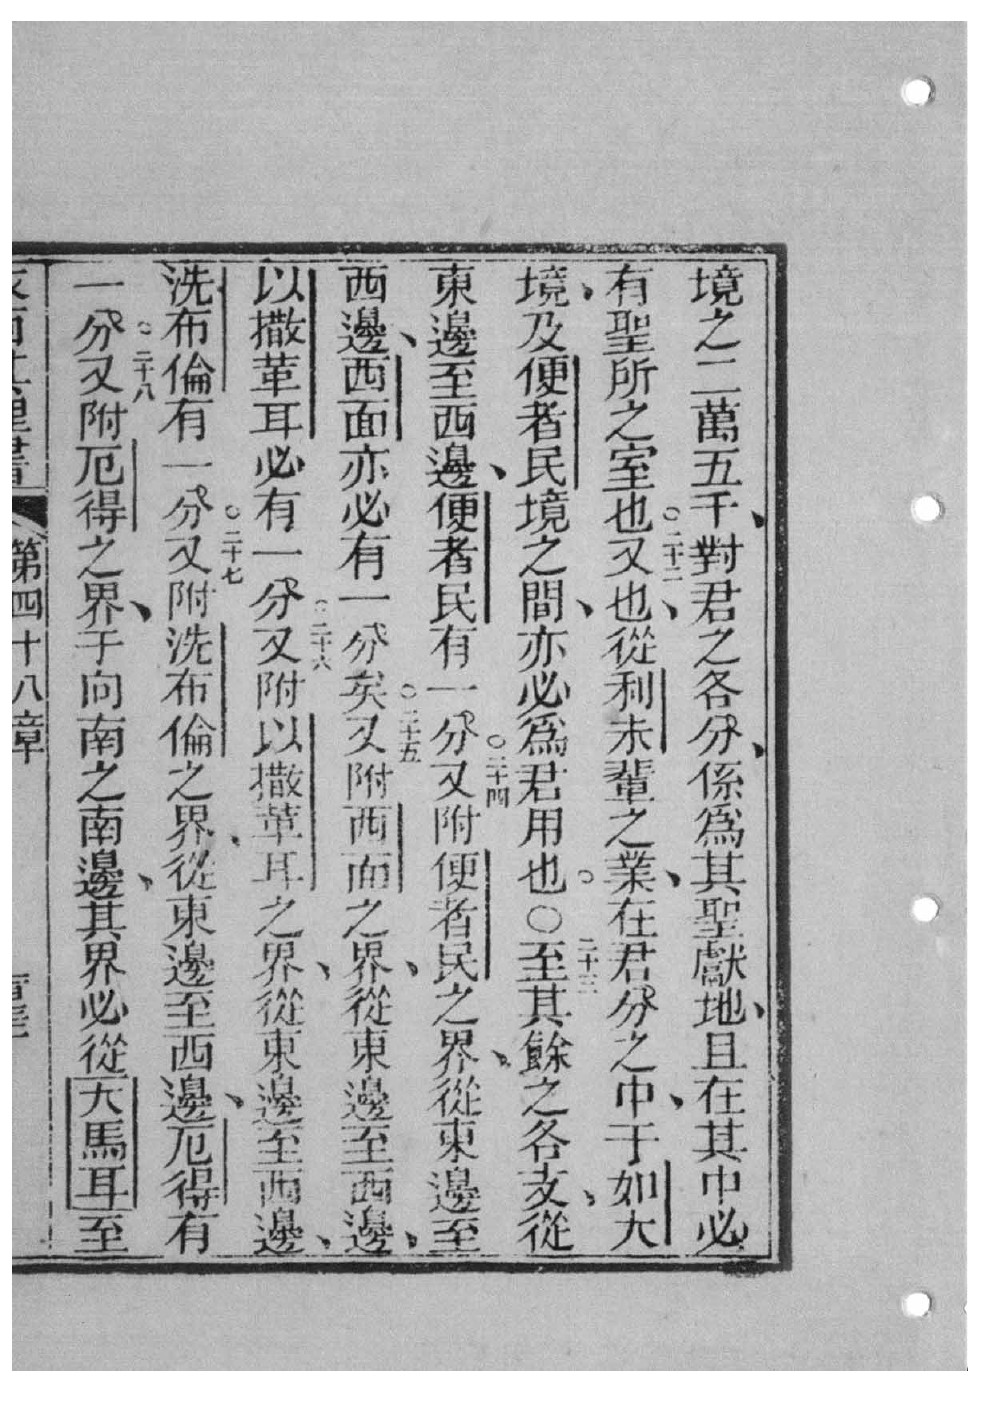 境之二萬五千、對君之各分、係爲其聖獻地、且在其中必
有聖所之室也○二十二又也、從利未輩之業、在君分之中、于如大
境、及便者民境之間、亦必爲君用也。○二十三至其餘之各支、從
東邊至西邊、便者民有一分○二十四又附便者民之界、從東邊至
西邊、西面亦必有一分矣○二十五又附西面之界、從東邊至西邊、
以撒革耳必有一分○二十六又附以撒革耳之界、從東邊至西邊、
洗布倫有一分○二十七又附洗布倫之界、從東邊至西邊、厄得有
一分○二十八又附厄得之界、于向南之南邊、其界必從大馬耳至
第四十八章